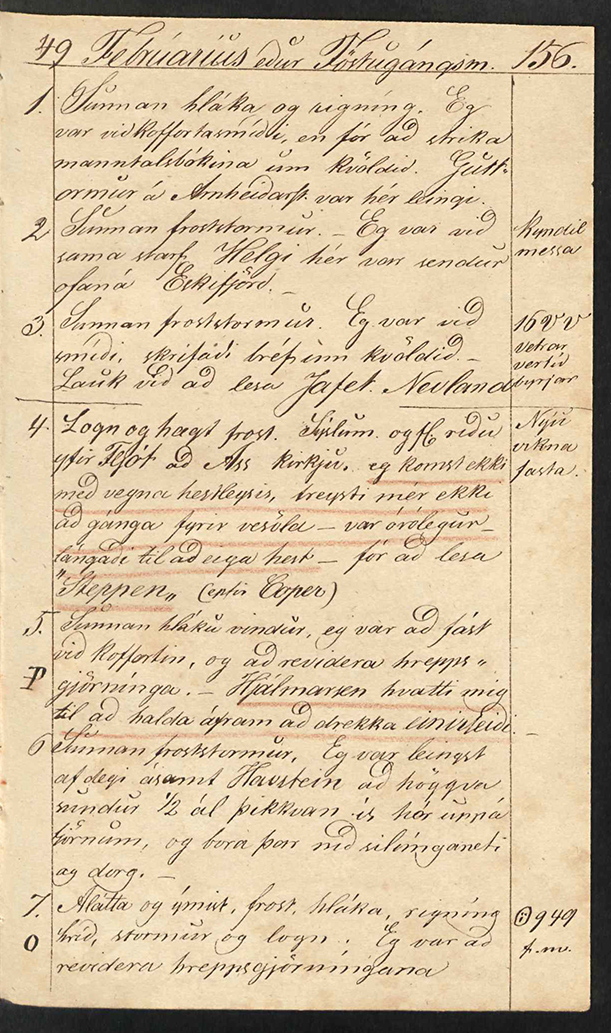 49 Februarius eður Föstugángsm. 156.
1. Sunnan hláka og rigníng. Eg
var við koffortasmíði, en fór að strika
manntalsbókina um kvöldið. Gutt-
ormur á Arnheiðarst. var hér leingi.
2 Sunnan froststormur. – Eg var við Kyndil
sama starf. Helgi hér var sendur messa
ofaná Eskifjörð. –
3. Sunnan froststormur. Eg var við 16 V V
smíði, skrifaði bréf um kvöldið. – vetrar
Lauk við að lesa Jafet. Nevland vertíð byrjar
4. Logn og hægt frost. Sýslum. og fl riðu Níu
yfir Fljót að Áss kirkju. eg komst ekki vikna
með vegna hestleysis, treysti mér ekki fasta.
að gánga fyrir vesöld – var órólegur –
lángaði til að eiga hest – fór að lesa
"Steppen„ (eptir Coper)
5. Sunnan hláku vindur, eg var að fást
við koffortin, og að revidera hrepps„
P gjörnínga. – Hjálmarsen hvatti mig
til að halda áfram að drekka einirseiði. –
6 Sunnan froststormur. Eg var leingst
af degi ásamt Havstein að höggva
sundur 1/2 ál þikkvan ís hér uppá
tjörnum, og bora þar með silúnganeti
og dorg. –
7. Alátta og ýmist, frost, hláka, rigníng 949
O hríð, stormur og logn. Eg var að f. m.
revidera hreppsgjörníngana